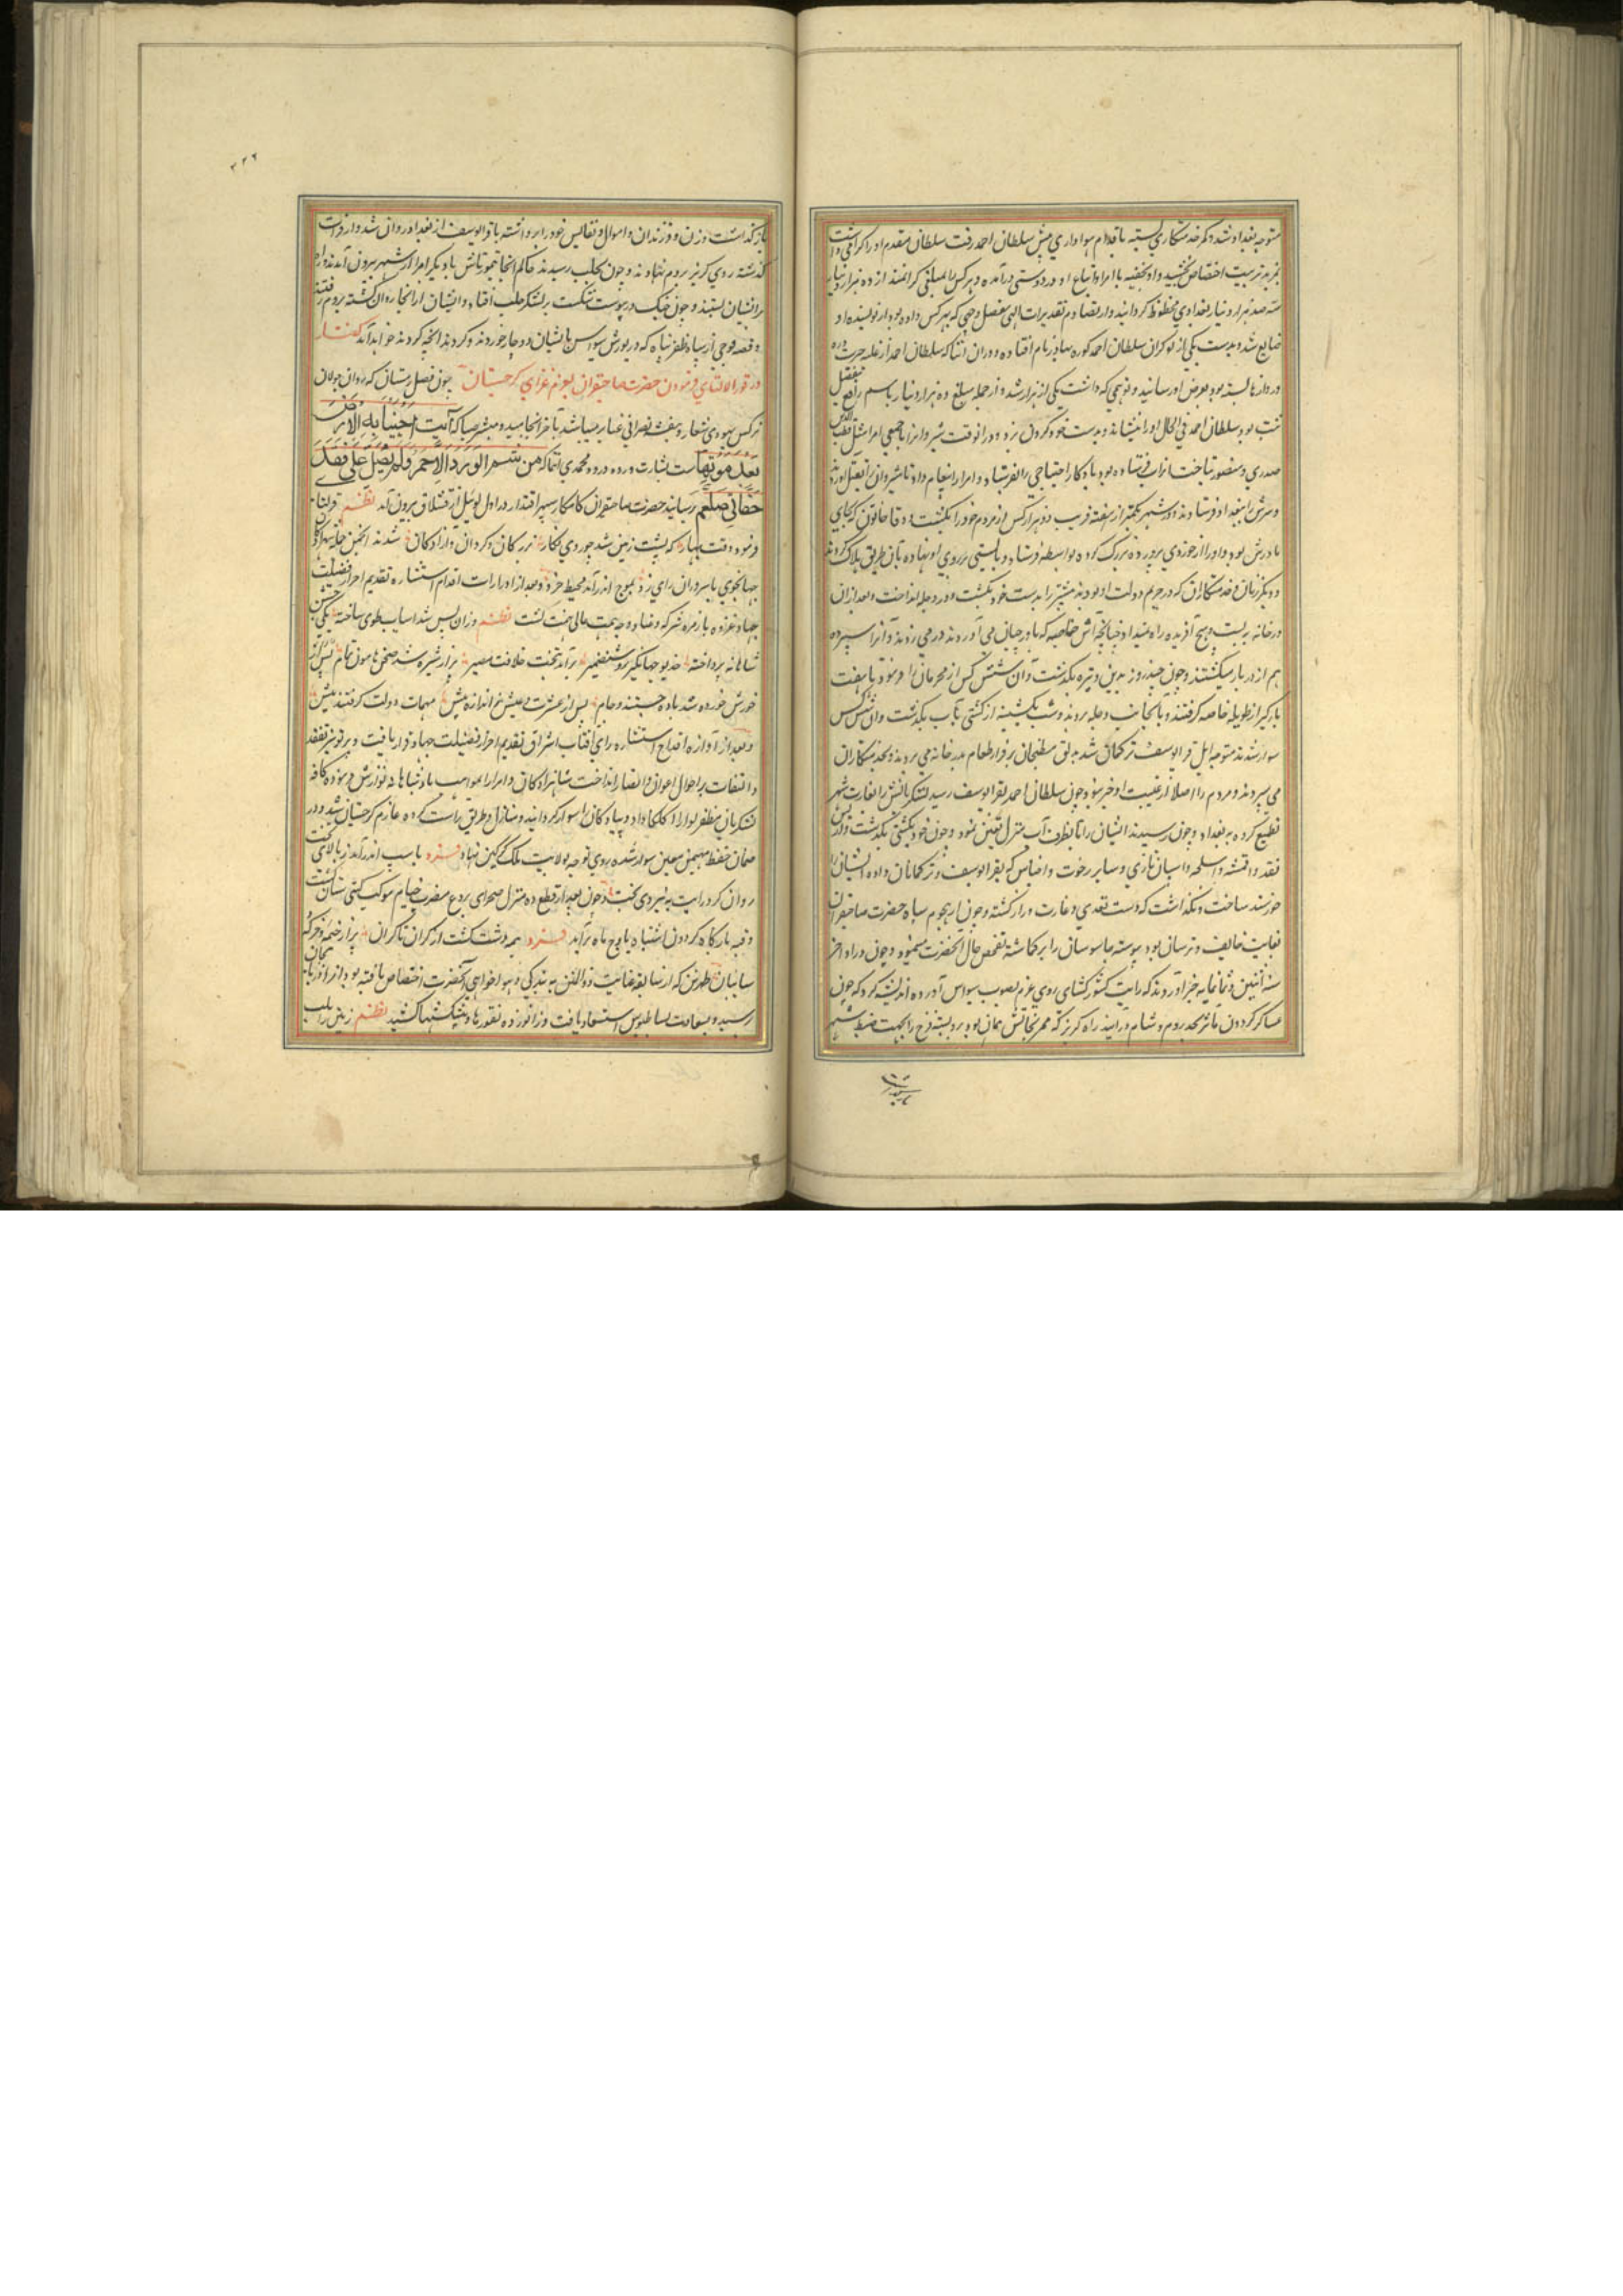 متوجه بغداد شد و کمر خدمتکاری بسته باقدام هواداری پیش سلطان احمد رفت سلطان مقدم او را کرامی داشت
بمزید تربیت اختصاص بخشید و او بخفیه با امرا و اتباع او در دوستی درآمده و هرکس را بمبلغی کرانمند از ده هزار دینار تا
سیصد هزار دینار بغدادی محظوظ کردانید و از قضا و تقدیرات الهی مفصل وجهی که بهرکس داده بود از نویسنده او
ضایع شد و بدست یکی از نوکران سلطان احمد کوره بهادر نام افتاده و در آن اثنا که سلطان احمد از غلبه حیرت
دروازها بسته بود بعرض او رسانید و توهمی که داشت یکی از هزار شد و از جمله مبلغ ده هزار دینار باسم رافع
ثبت بود سلطان احمد فی الحال او را بنشاند و بدست خود کردن بزد و در آنوقت شیروان را با جمعی امرا مثل قطب
حیدری و منصور بتاخت فرستاده بود یادکار اختیاجی را بفرستاد و امرا را پیغام داد تا شیروان را بقتل آورند
و سرش را ببغداد فرستادند و در شهر بکمتر از هفته قریب دو هزار کس از مردم خود را بکشت و وفا خاتون که بجای
مادرش بود و او را از خوردی پرورده بزرک کرده بواسطه فرستاد و بالشی بر روی او نهاده بآن طریق هلاک کردند
و دیکر زنان و خدمتکاران که در حریم دولت او بودند بیشتر را بدست خود بکشت و در دجله انداخت و بعد از آن
در خانه ببست و هیچ آفریده راه نمیداد چنانچه آش خاصه که باورچیان می آوردند در می زدند و آنرا سپرده
هم از در باز میکشتند و چون چند روز بدین وتیره بکذشت آن شش کس از محرمان را فرمود تا هفت
بارکیر از طویله خاصه کرفتند و بآنجانب دجله بردند و شب بکشتی از آب بکذشت و آن شش کس
سوار شدند متوجه ایل قرا یوسف ترکمان شد و مطبخیان برقرار طعام بدر خانه می بردند و بخدمتکاران
می سپردند و مردم را اصلا از غیبت او خبر نبود چون سلطان احمد بقرا یوسف رسید لشکریانش را بغارت شهر
تطمیع کرده به بغداد و چون رسیدند ایشان را تا بطرف آب منزل تعیین نمود و چون خود بکشتی بکذشت
نقد و اقمشه و اسلحه و اسبان تازی و سایر رخوت و اجناس که بقرا یوسف و ترکمانان داده ایشان را
خورسند ساخت و نکذاشت که دست تعدی و غارت دراز کشته و چون از هجوم سپاه حضرت صاحبقران
بغایت خایف و ترسان بود پیوسته جاسوسان را بر کماشته تفحص حال آنحضرت مینمود و چون در اواخر
سنه اثنین و ثمانمایه خبر آوردند که رایت کشورکشای روی عزم بصوب سیواس آورده اندیشه کرد که چون
عساکر کردون مآثر بحد روم و شام درآیند راه کریز که ممر نجاتش همان بود بربسته
بازکذاشت وزن و فرزندان و اموال و نفایس خود را برداشته باقرا یوسف از بغداد روان شد و از فرات
کذشته روی کریز بروم نهادند و چون بحلب رسیدند حاکم آنجا تیمورتاش با دیکر امرا از شهر بیرون آمدند و راه
بر ایشان ببستند و چون جنک درپیوست شکست بر لشکر حلب افتاد و ایشان از آنجا روان کشته بروم رفتند
و قصه فوجی از سپاه ظفر پناه که در یورش سیواس بایشان دوچار خوردند و کردند آنچه کردند خواهد آمد کفتار
در قورالتای فرمودن حضرت صاحبقران بعزم غزای کرجستان چون فصل زمستان که روان جولان
نرکس یهودی شعار و بنفشه نصرانی غیار میباشد بآخر انجامید و مبشر صبا که آیت احیینا به الارض
بعد موتها بشارت ورود ورد محمدی انتما که من شم الورد الاحمر ولم یصل علی فقد
جفانی صلعم رسانید حضرت صاحبقران کامکار سپهر اقتدار در اول لوییل از قشلاق بیرون آمد نظم
فرمود وقت بهار که پشت زمین شد چو روی نکار بزرکان و کردان و آزادکان شدند انجمن
جهانجوی با سروران رای زد بموج اندر آمد محیط خرد و بعد از ادارات اقدام استشاره تقدیم احراز فضیلت
جهاد و غزوه با زمره شرکه و عناد وجهه همت عالی نهمت کشت نظم وزان پس شد اسباب طوی ساخته
شاهانه پرداخته خدیو جهانکیر روشنضمیر برآمد بتخت خلافت مصیر
خورش خورده شد باده جستند و جام پس از عشرت و عیش ز اندازه بیش مهمات دولت کرفتند پیش
و بعد از آوازه اقداح استشاره رای آفتاب اشراق تقدیم احراز فضیلت جهاد قرار یافت و پرتو تفقد
و التفات بر احوال اعوان و انصار انداخت شاهزادکان و امرا را بمواهب پادشاهانه نوازش فرموده کافه
لشکریان مظفر لوا را اکلکا داد و پیادکان را سوار کردانید و منازل و طریق راست کرده عازم کرجستان شد و در
ضمان حفظ مهیمن معین سوار شده روی توجه بولایت ملک کرکین نهاد فرد باسب اندر آمد ز بالای تخت
روان کرد رایت به نیروی بخت و چون بعد از قطع ده منزل صحرای بردع مضرب خیام موکب کیتی ستان کشت
و قبه بارکاه کردون اشتباه باوج ماه برآمد فرد همه دشت کشت از کران تا کران پر از خیمه و خرکه
سایبان طهرتن که از سابقه عنایت ذوالمنن به بندکی و هواخواهی آنحضرت اختصاص یافته بود از ارزنجان
رسید و بسعادت بساطبوس استسعاد یافت و زانو زده تقوزها و پیشکشها کشید نظم